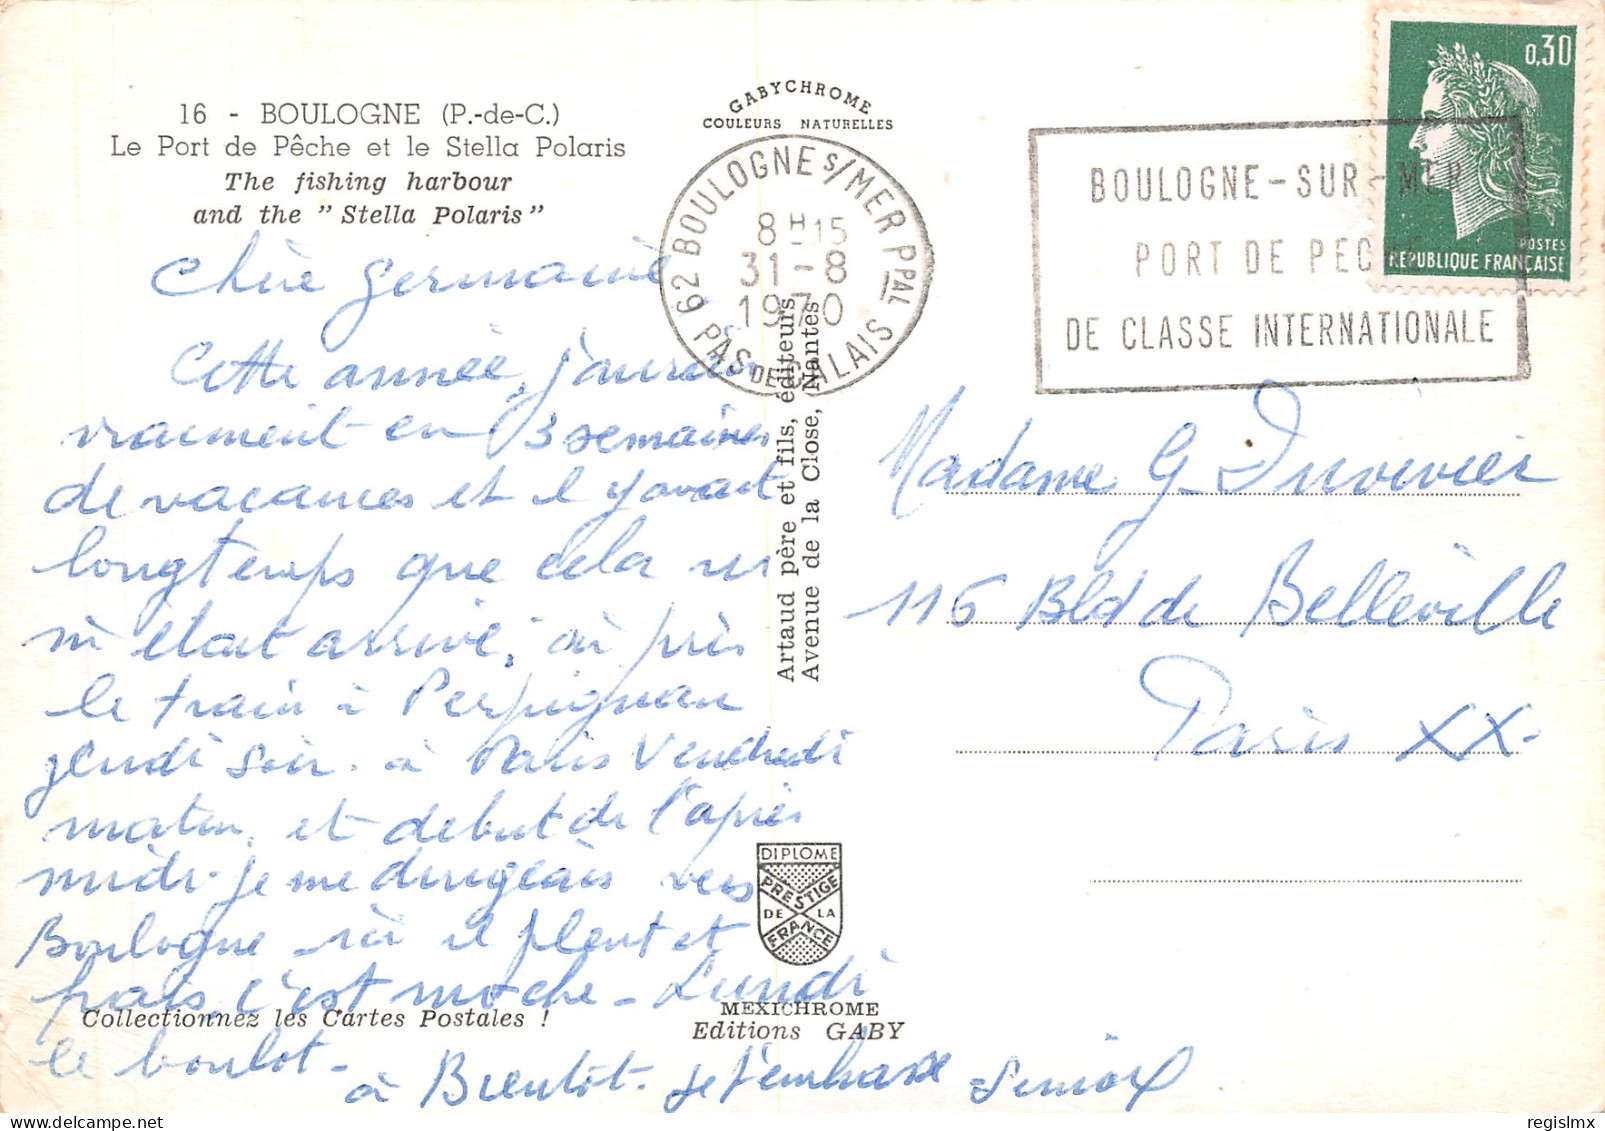 16 - BOULOGNE (P.-de-C.)
Le Port de Pêche et le Stella Polaris
The fishing harbour
and the " Stella Polaris "
GABYCHROME
COULEURS NATURELLES
62 BOULOGNE S/MER PPAL
8H15
31-8
1970
PAS DE CALAIS
BOULOGNE-SUR-MER
PORT DE PECHE
DE CLASSE INTERNATIONALE
0,30
POSTES
REPUBLIQUE FRANÇAISE
Chère Germaine
Cette année, j'aurai
vraiment eu 3 semaines
de vacances et il y avait
longtemps que cela ne
m'était arrivé,
le train à Perpignan
jeudi soir. à Paris Vendredi
matin, et début de l'après
midi. je me dirigeais vers
Boulogne il pleut et
puis, c'est moche - Lundi
le boulot -
à Bientôt. je t'embrasse
Madame G. Duvivier
116 Bld de Belleville
Paris XX.
Artaud père et fils, éditeurs
Avenue de la Close, Nantes
DIPLOME
PRESTIGE
DE LA
FRANCE
Collectionnez les Cartes Postales !
MEXICHROME
Editions GABY
regislmx